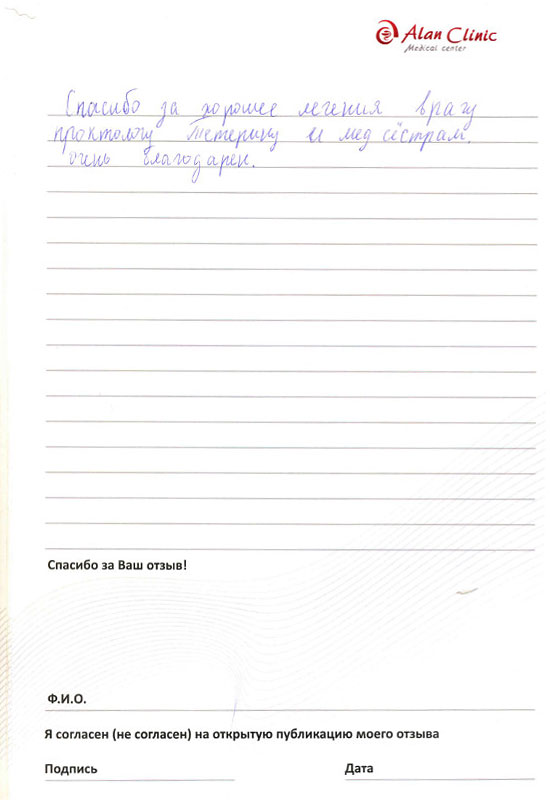 Alan Clinic
Medical center
Спасибо за хорошее лечения врачу
проктологу Тетерину и мед сёстрам.
очень благодарен.
Спасибо за Ваш отзыв!
Ф.И.О.
Я согласен (не согласен) на открытую публикацию моего отзыва
Подпись Дата